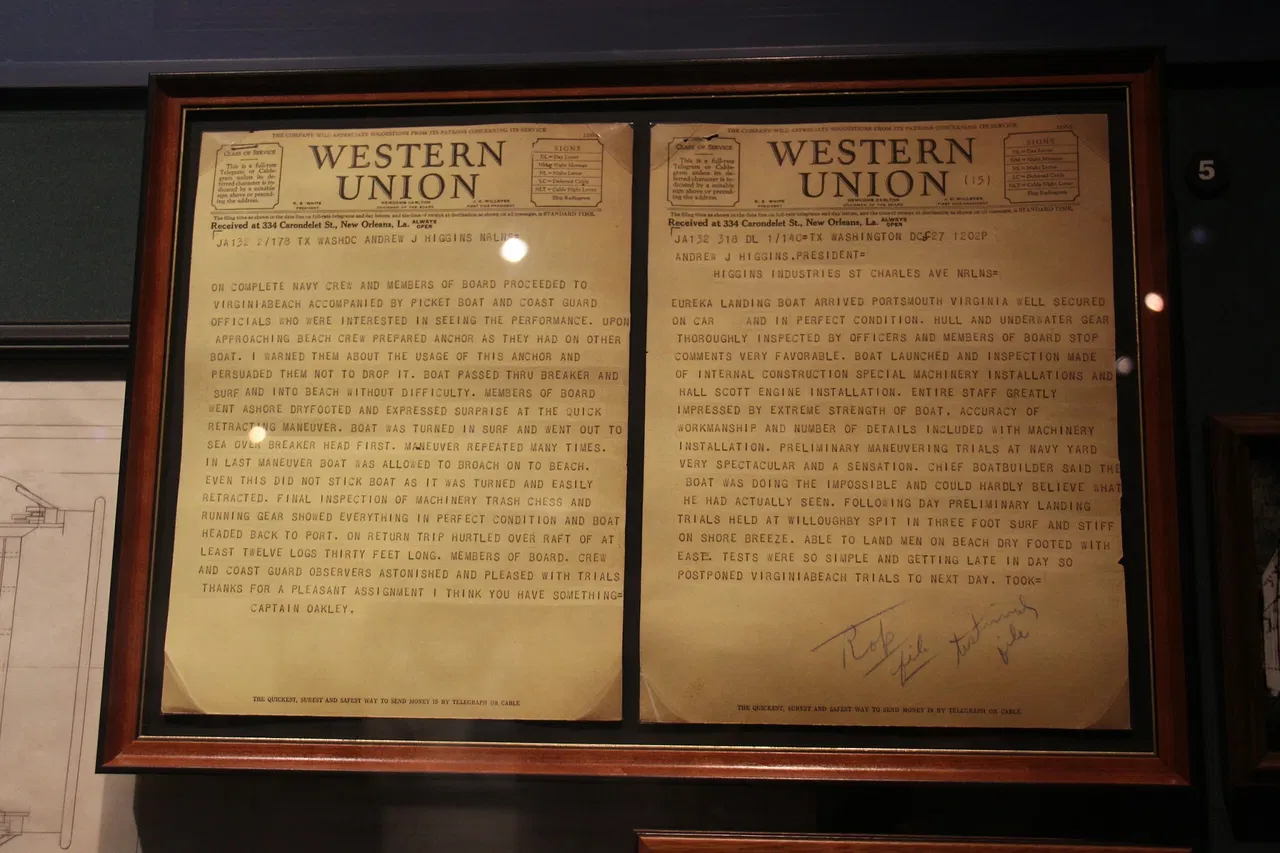 THE COMPANY WILL APPRECIATE SUGGESTIONS FROM ITS PATRONS CONCERNING ITS SERVICE
CLASS OF SERVICE
This is a full-rate
Telegram or Cable-
gram unless its de-
ferred character is in-
dicated by a suitable
sign above or preced-
ing the address.
WESTERN
UNION
SIGNS
DL = Day Letter
NM = Night Message
NL = Night Letter
LC = Deferred Cable
NLT = Cable Night Letter
Ship Radiogram
R. B. WHITE
PRESIDENT
NEWCOMB CARLTON
CHAIRMAN OF THE BOARD
J. C. WILLEVER
FIRST VICE-PRESIDENT
The filing time as shown in the date line on full-rate telegrams and day letters, and the time of receipt at destination as shown on all messages, is STANDARD TIME.
Received at 334 Carondelet St., New Orleans, La. ALWAYS OPEN
JA132 2/178 TX WASHDC ANDREW J HIGGINS NRLNS=
ON COMPLETE NAVY CREW AND MEMBERS OF BOARD PROCEEDED TO
VIRGINIABEACH ACCOMPANIED BY PICKET BOAT AND COAST GUARD
OFFICIALS WHO WERE INTERESTED IN SEEING THE PERFORMANCE. UPON
APPROACHING BEACH CREW PREPARED ANCHOR AS THEY HAD ON OTHER
BOAT. I WARNED THEM ABOUT THE USAGE OF THIS ANCHOR AND
PERSUADED THEM NOT TO DROP IT. BOAT PASSED THRU BREAKER AND
SURF AND INTO BEACH WITHOUT DIFFICULTY. MEMBERS OF BOARD
WENT ASHORE DRYFOOTED AND EXPRESSED SURPRISE AT THE QUICK
RETRACTING MANEUVER. BOAT WAS TURNED IN SURF AND WENT OUT TO
SEA OVER BREAKER HEAD FIRST. MANEUVER REPEATED MANY TIMES.
IN LAST MANEUVER BOAT WAS ALLOWED TO BROACH ON TO BEACH.
EVEN THIS DID NOT STICK BOAT AS IT WAS TURNED AND EASILY
RETRACTED. FINAL INSPECTION OF MACHINERY TRASH CHESS AND
RUNNING GEAR SHOWED EVERYTHING IN PERFECT CONDITION AND BOAT
HEADED BACK TO PORT. ON RETURN TRIP HURTLED OVER RAFT OF AT
LEAST TWELVE LOGS THIRTY FEET LONG. MEMBERS OF BOARD. CREW
AND COAST GUARD OBSERVERS ASTONISHED AND PLEASED WITH TRIALS
THANKS FOR A PLEASANT ASSIGNMENT I THINK YOU HAVE SOMETHING=
CAPTAIN OAKLEY.
THE QUICKEST, SUREST AND SAFEST WAY TO SEND MONEY IS BY TELEGRAPH OR CABLE
THE COMPANY WILL APPRECIATE SUGGESTIONS FROM ITS PATRONS CONCERNING ITS SERVICE
CLASS OF SERVICE
This is a full-rate
Telegram or Cable-
gram unless its de-
ferred character is in-
dicated by a suitable
sign above or preced-
ing the address.
WESTERN
UNION (15)
SIGNS
DL = Day Letter
NM = Night Message
NL = Night Letter
LC = Deferred Cable
NLT = Cable Night Letter
Ship Radiogram
R. B. WHITE
PRESIDENT
NEWCOMB CARLTON
CHAIRMAN OF THE BOARD
J. C. WILLEVER
FIRST VICE-PRESIDENT
The filing time as shown in the date line on full-rate telegrams and day letters, and the time of receipt at destination as shown on all messages, is STANDARD TIME.
Received at 334 Carondelet St., New Orleans, La. ALWAYS OPEN
JA132 318 DL 1/140=TX WASHINGTON DC 27 1202P
ANDREW J HIGGINS,PRESIDENT=
HIGGINS INDUSTRIES ST CHARLES AVE NRLNS=
EUREKA LANDING BOAT ARRIVED PORTSMOUTH VIRGINIA WELL SECURED
ON CAR AND IN PERFECT CONDITION. HULL AND UNDERWATER GEAR
THOROUGHLY INSPECTED BY OFFICERS AND MEMBERS OF BOARD STOP
COMMENTS VERY FAVORABLE. BOAT LAUNCHED AND INSPECTION MADE
OF INTERNAL CONSTRUCTION SPECIAL MACHINERY INSTALLATIONS AND
HALL SCOTT ENGINE INSTALLATION. ENTIRE STAFF GREATLY
IMPRESSED BY EXTREME STRENGTH OF BOAT, ACCURACY OF
WORKMANSHIP AND NUMBER OF DETAILS INCLUDED WITH MACHINERY
INSTALLATION. PRELIMINARY MANEUVERING TRIALS AT NAVY YARD
VERY SPECTACULAR AND A SENSATION. CHIEF BOATBUILDER SAID THE
BOAT WAS DOING THE IMPOSSIBLE AND COULD HARDLY BELIEVE WHAT
HE HAD ACTUALLY SEEN. FOLLOWING DAY PRELIMINARY LANDING
TRIALS HELD AT WILLOUGHBY SPIT IN THREE FOOT SURF AND STIFF
ON SHORE BREEZE. ABLE TO LAND MEN ON BEACH DRY FOOTED WITH
EASE. TESTS WERE SO SIMPLE AND GETTING LATE IN DAY SO
POSTPONED VIRGINIABEACH TRIALS TO NEXT DAY. TOOK=
file
file
THE QUICKEST, SUREST AND SAFEST WAY TO SEND MONEY IS BY TELEGRAPH OR CABLE
5